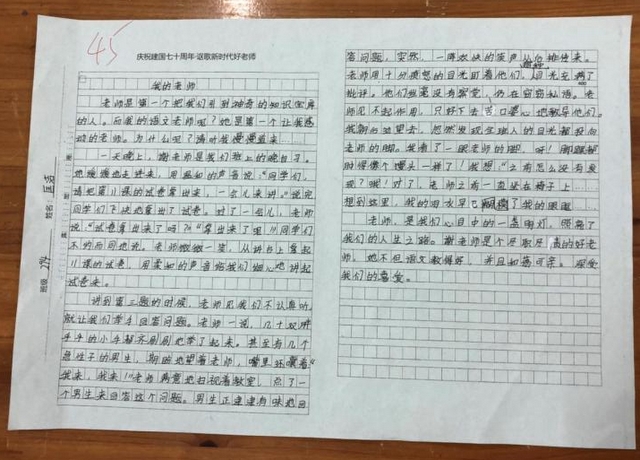 45
庆祝建国七十周年·讴歌新时代好老师
我的老师
老师是第一个把我们引到神奇的知识宝库
的人。而我的语文老师呢?她是第一个让我感
动的老师。为什么呢?请听我慢慢道来……
一天晚上,谢老师是我们班上的晚自习。
她慢慢地走进来,用温和的声音说:“同学们,
请把第儿课的试卷拿出来,一会儿来讲。”说完
同学们飞快地拿出了试卷。过了一会儿,老师
说:“试卷拿出来了吗?”“拿出来了!”同学们
不约而同地说。老师微微一笑,从讲台上拿起
儿课的试卷,用柔和的声音给我们细心地讲起
试卷来。
讲到第三题的时候,老师见我们不认真听,
就让我们举手回答问题。老师一说,几十双
的小手都齐刷刷地举了起来。甚至有几个
急性子的男生,期盼地望着老师,嘴里还嚷着“
我来,我来!”老师满意地扫视着教室,点了一
个男生来回答这个问题。男生正津津有味地回
答问题,突然,一阵欢快的笑声从后排传来。
老师用十分愤怒的目光盯着他们,目光充满了
批评。他们丝毫没有察觉,仍在窃窃私语。老
师见不起作用,只好下去苦口婆心地教导他们。
我朝后边望去,忽然发现全班人的目光都投向
老师的脚。我看了一眼老师的脚,呀!脚踝都
肿得像个馒头一样了!我想:“之前怎么没有发
现?哦!对了,老师之前一直坐在椅子上……”
想到这里,我的泪水早已模糊了我的眼眶……
老师,是我们心目中的一盏明灯,照亮了
我们的人生之路。谢老师是个尽职尽责的好老
师,她不但语文教得好,并且和蔼可亲。深受
我们的喜爱。
姓名:
班级